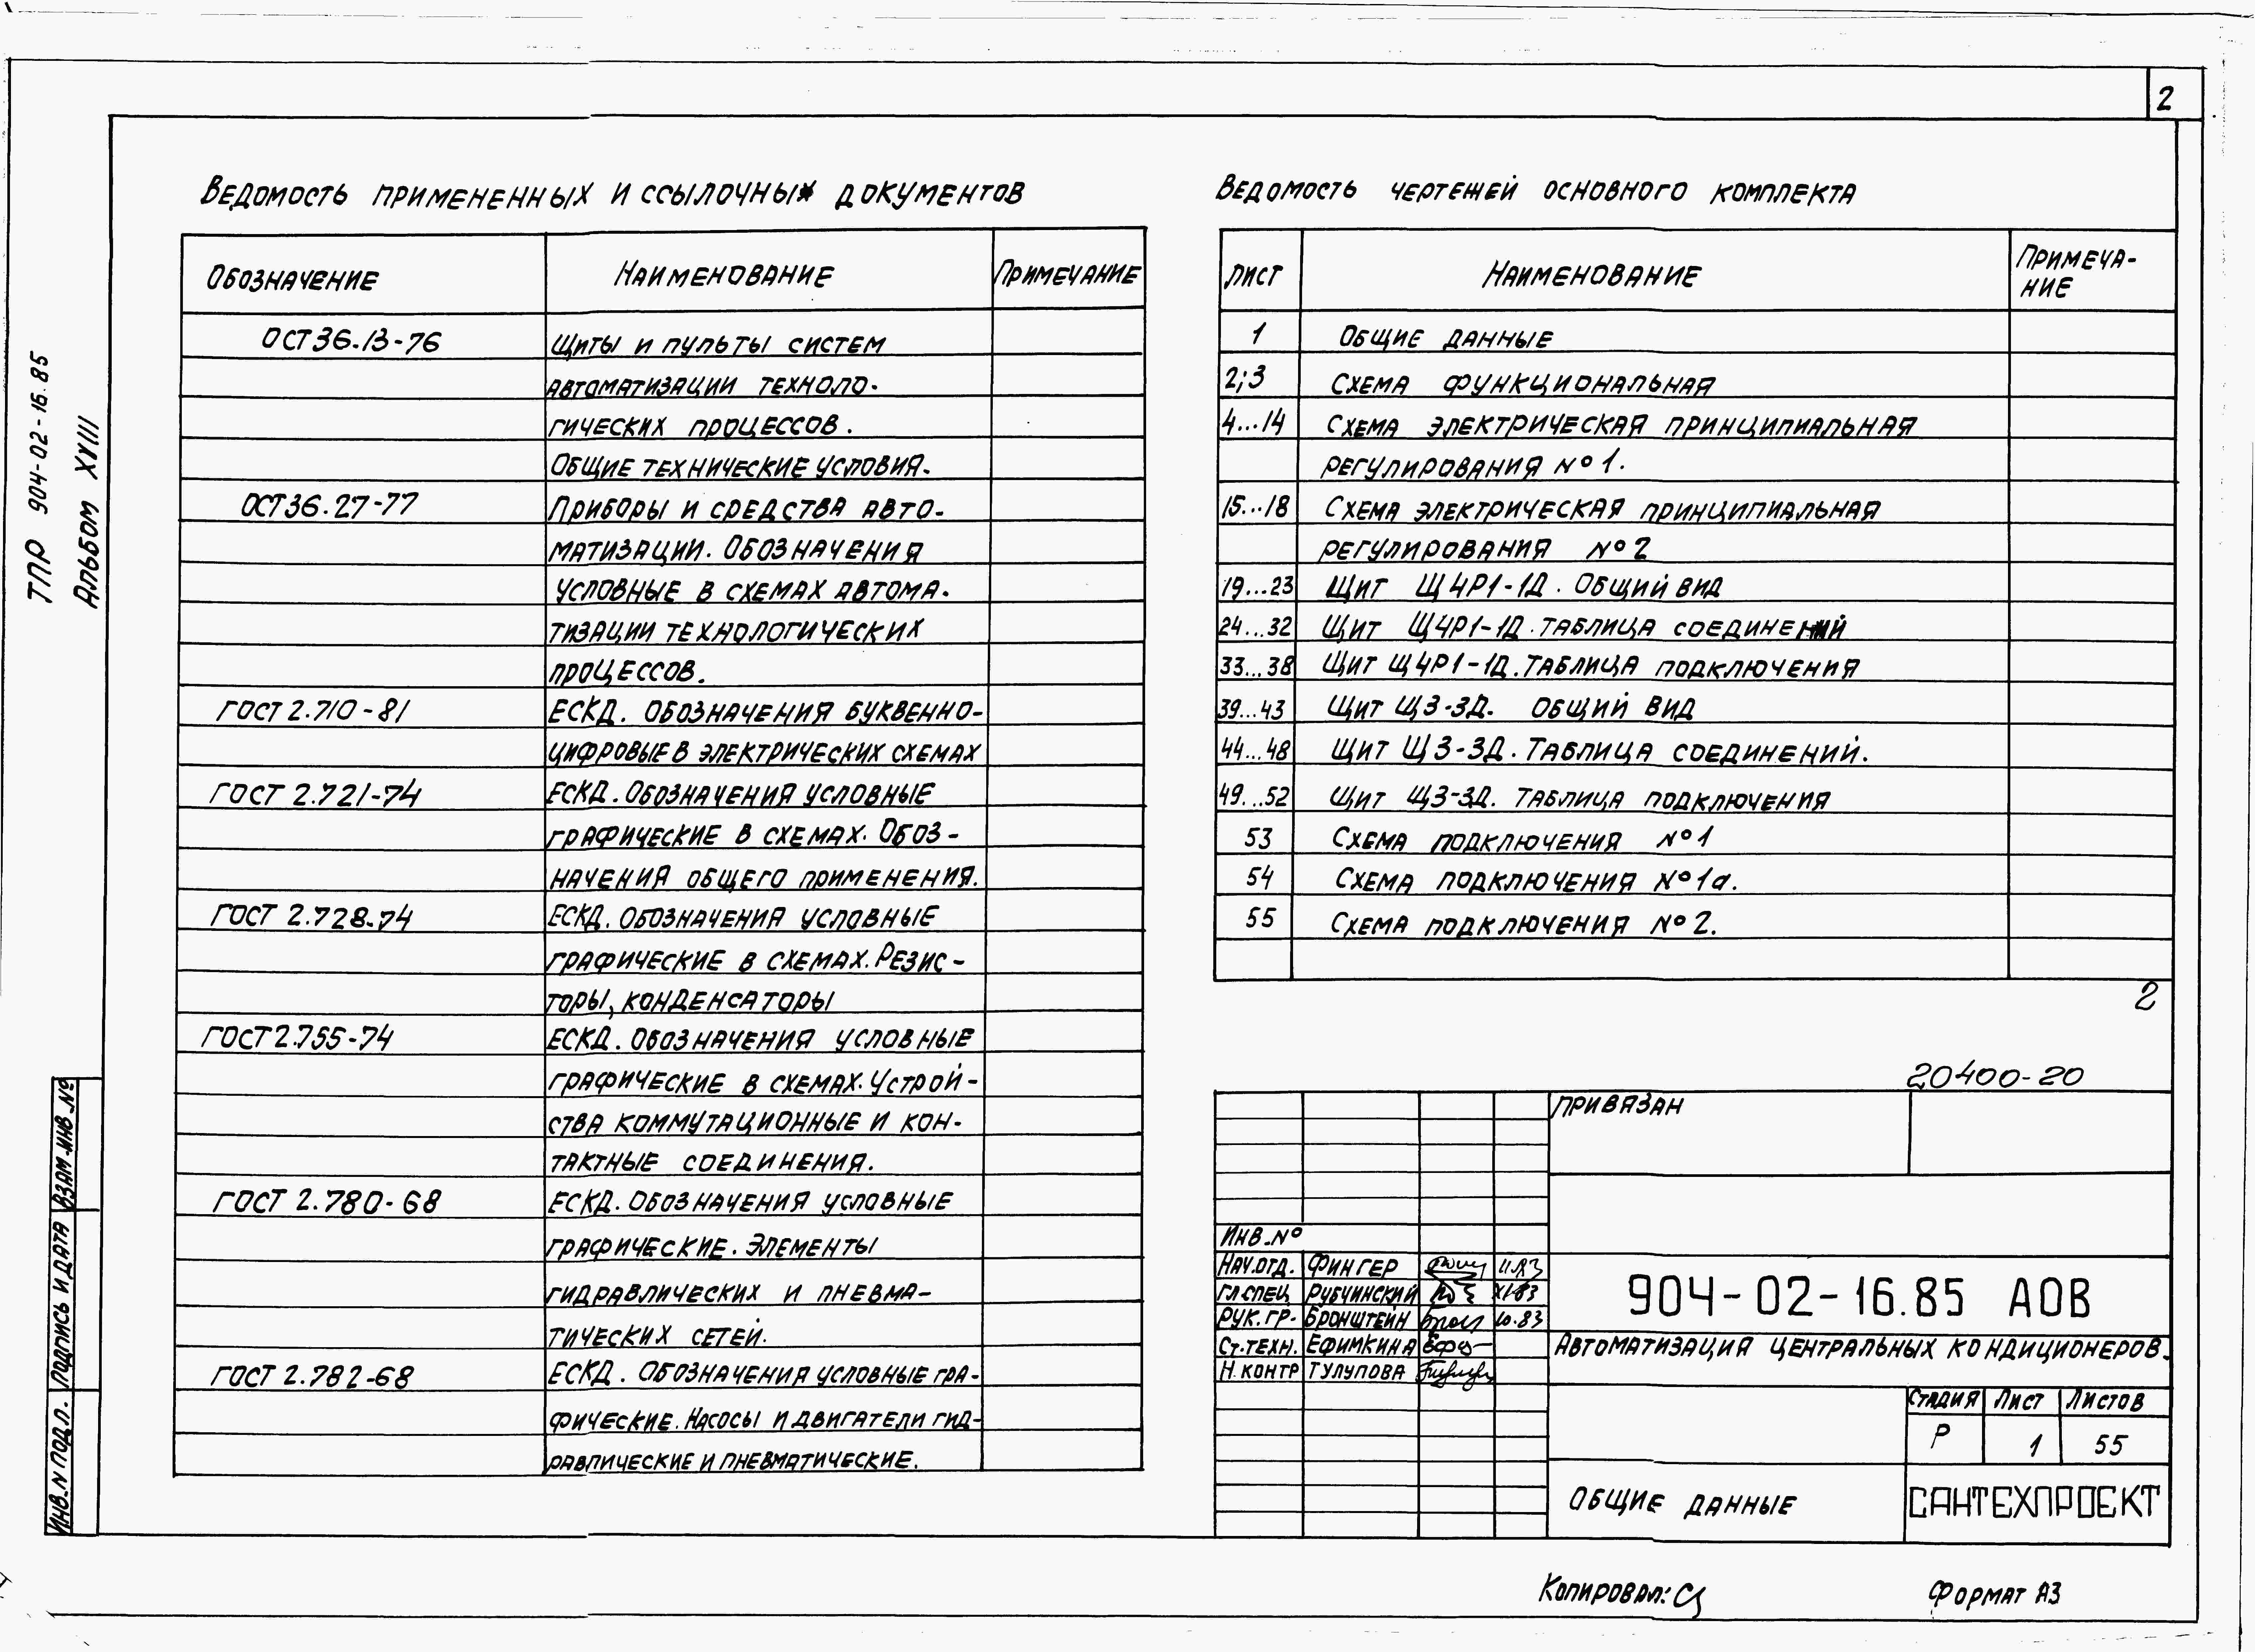 2
ТПР 904-02-16.85
Альбом XVIII
Ведомость примененных и ссылочных документов
Обозначение Наименование Примечание
ОСТ 36.13-76 Щиты и пульты систем
автоматизации техноло-
гических процессов.
Общие технические условия.
ОСТ 36.27-77 Приборы и средства авто-
матизации. Обозначения
условные в схемах автома-
тизации технологических
процессов.
ГОСТ 2.710-81 ЕСКД. Обозначения буквенно-
цифровые в электрических схемах
ГОСТ 2.721-74 ЕСКД. Обозначения условные
графические в схемах. Обоз-
начения общего применения.
ГОСТ 2.728-74 ЕСКД. Обозначения условные
графические в схемах. Резис-
торы, конденсаторы
ГОСТ 2.755-74 ЕСКД. Обозначения условные
графические в схемах. Устрой-
ства коммутационные и кон-
тактные соединения.
ГОСТ 2.780-68 ЕСКД. Обозначения условные
графические. Элементы
гидравлических и пневма-
тических сетей.
ГОСТ 2.782-68 ЕСКД. Обозначения условные гра-
фические. Насосы и двигатели гид-
равлические и пневматические.
Ведомость чертежей основного комплекта
Лист Наименование Примеча-
ние
1 Общие данные
2;3 Схема функциональная
4...14 Схема электрическая принципиальная
регулирования №1.
15...18 Схема электрическая принципиальная
регулирования №2
19...23 Щит Щ4Р1-1Д. Общий вид
24...32 Щит Щ4Р1-1Д. Таблица соединений
33...38 Щит Щ4Р1-1Д. Таблица подключения
39...43 Щит Щ3-3Д. Общий вид
44...48 Щит Щ3-3Д. Таблица соединений.
49...52 Щит Щ3-3Д. Таблица подключения
53 Схема подключения №1
54 Схема подключения №1а.
55 Схема подключения №2.
2
20400-20
Привязан
Инв.№
Нач.отд. Фингер 11.83
Гл.спец Рубчинский XI-83
Рук.гр. Бронштейн 10.83
Ст.техн. Ефимкина
Н.контр Тулупова
904-02-16.85 АОВ
Автоматизация центральных кондиционеров.
Стадия Лист Листов
Р 1 55
Общие данные
САНТЕХПРОЕКТ
Взам.инв.№
Подпись и дата
Инв.N подл.
Копировал:
Формат А3